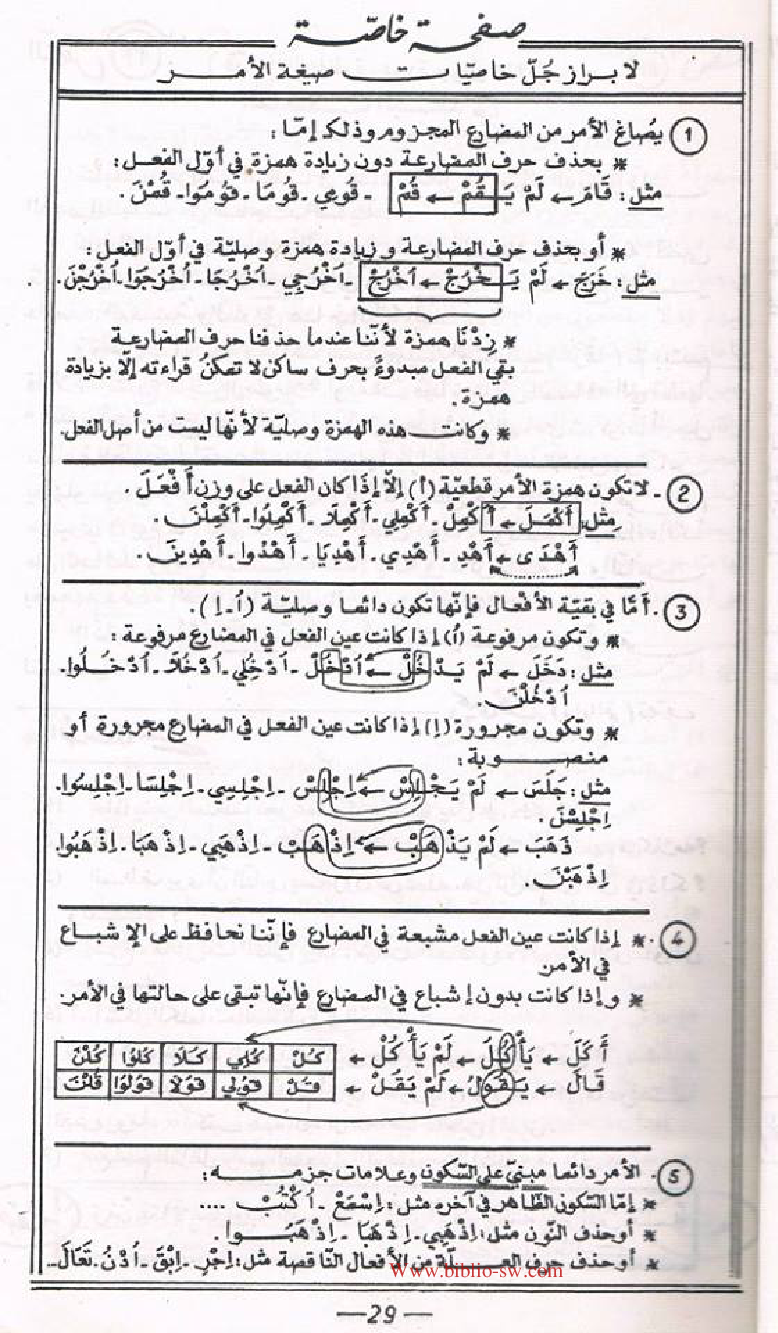 صفحة خاصّة
لابراز جُلّ خاصيّات صيغة الأمر
① يُصَاغ الأمر من المضارع المجزوم وذلك إمّا :
* بحذف حرف المضارعة دون زيادة همزة في أوّل الفعل :
مثل : قَامَ ← لَمْ يَقُمْ ← قُمْ - قُومِي - قُومَا - قُومُوا - قُمْنَ .
* أو بحذف حرف المضارعة وزيادة همزة وصليّة في أوّل الفعل :
مثل : خَرَجَ ← لَمْ يَخْرُجْ ← اُخْرُجْ - اُخْرُجِي - اُخْرُجَا - اُخْرُجُوا - اُخْرُجْنَ .
* زِدْنَا همزة لأنّنا عندما حذفنا حرف المضارعة
بقي الفعل مبدوءً بحرف ساكن لا تمكنُ قراءته إلّا بزيادة
همزة .
* وكانت هذه الهمزة وصليّة لأنّها ليست من أصل الفعل .
② - لا تكون همزة الأمر قطعيّة (أ) إلّا إذا كان الفعل على وزن أَفْعَلَ .
مثل : أَكْمَلَ ← أَكْمِلْ - أَكْمِلِي - أَكْمِلَا - أَكْمِلُوا - أَكْمِلْنَ .
أَهْدَى ← أَهْدِ - أَهْدِي - أَهْدِيَا - أَهْدُوا - أَهْدِينَ .
③ . أمّا في بقيّة الأفعال فإنّها تكون دائما وصليّة (اُ - اِ) .
* وتكون مرفوعة (اُ) إذا كانت عين الفعل في المضارع مرفوعة :
مثل : دَخَلَ ← لَمْ يَدْخُلْ ← اُدْخُلْ - اُدْخُلِي - اُدْخُلَا - اُدْخُلُوا .
اُدْخُلْنَ .
* وتكون مجرورة (اِ) إذا كانت عين الفعل في المضارع مجرورة أو
منصوبة :
مثل : جَلَسَ ← لَمْ يَجْلِسْ ← اِجْلِسْ - اِجْلِسِي - اِجْلِسَا - اِجْلِسُوا .
اِجْلِسْنَ .
ذَهَبَ ← لَمْ يَذْهَبْ ← اِذْهَبْ - اِذْهَبِي - اِذْهَبَا - اِذْهَبُوا
اِذْهَبْنَ .
④ . * إذا كانت عين الفعل مشبعة في المضارع فإنّنا نحافظ على الإشباع
في الأمر
* وإذا كانت بدون إشباع في المضارع فإنّها تبقى على حالتها في الأمر .
أَكَلَ ← يَأْكُلُ ← لَمْ يَأْكُلْ ← كُلْ كُلِي كُلَا كُلُوا كُلْنَ
قَالَ ← يَقُولُ ← لَمْ يَقُلْ ← قُلْ قُولِي قُولَا قُولُوا قُلْنَ
⑤ . الأمر دائما مبنيّ على السّكون وعلامات جزمه :
* إمّا السّكون الظّاهر في آخره مثل : اِسْمَعْ - اُكْتُبْ ....
* أو حذف النّون مثل : اِذْهَبِي - اِذْهَبَا - اِذْهَبُوا .
* أو حذف حرف العلّة من الأفعال النّاقصة مثل : اِجْرِ - اِبْقَ - اُدْنُ - تَعَالَ ..
www.biblio-sw.com
—29—